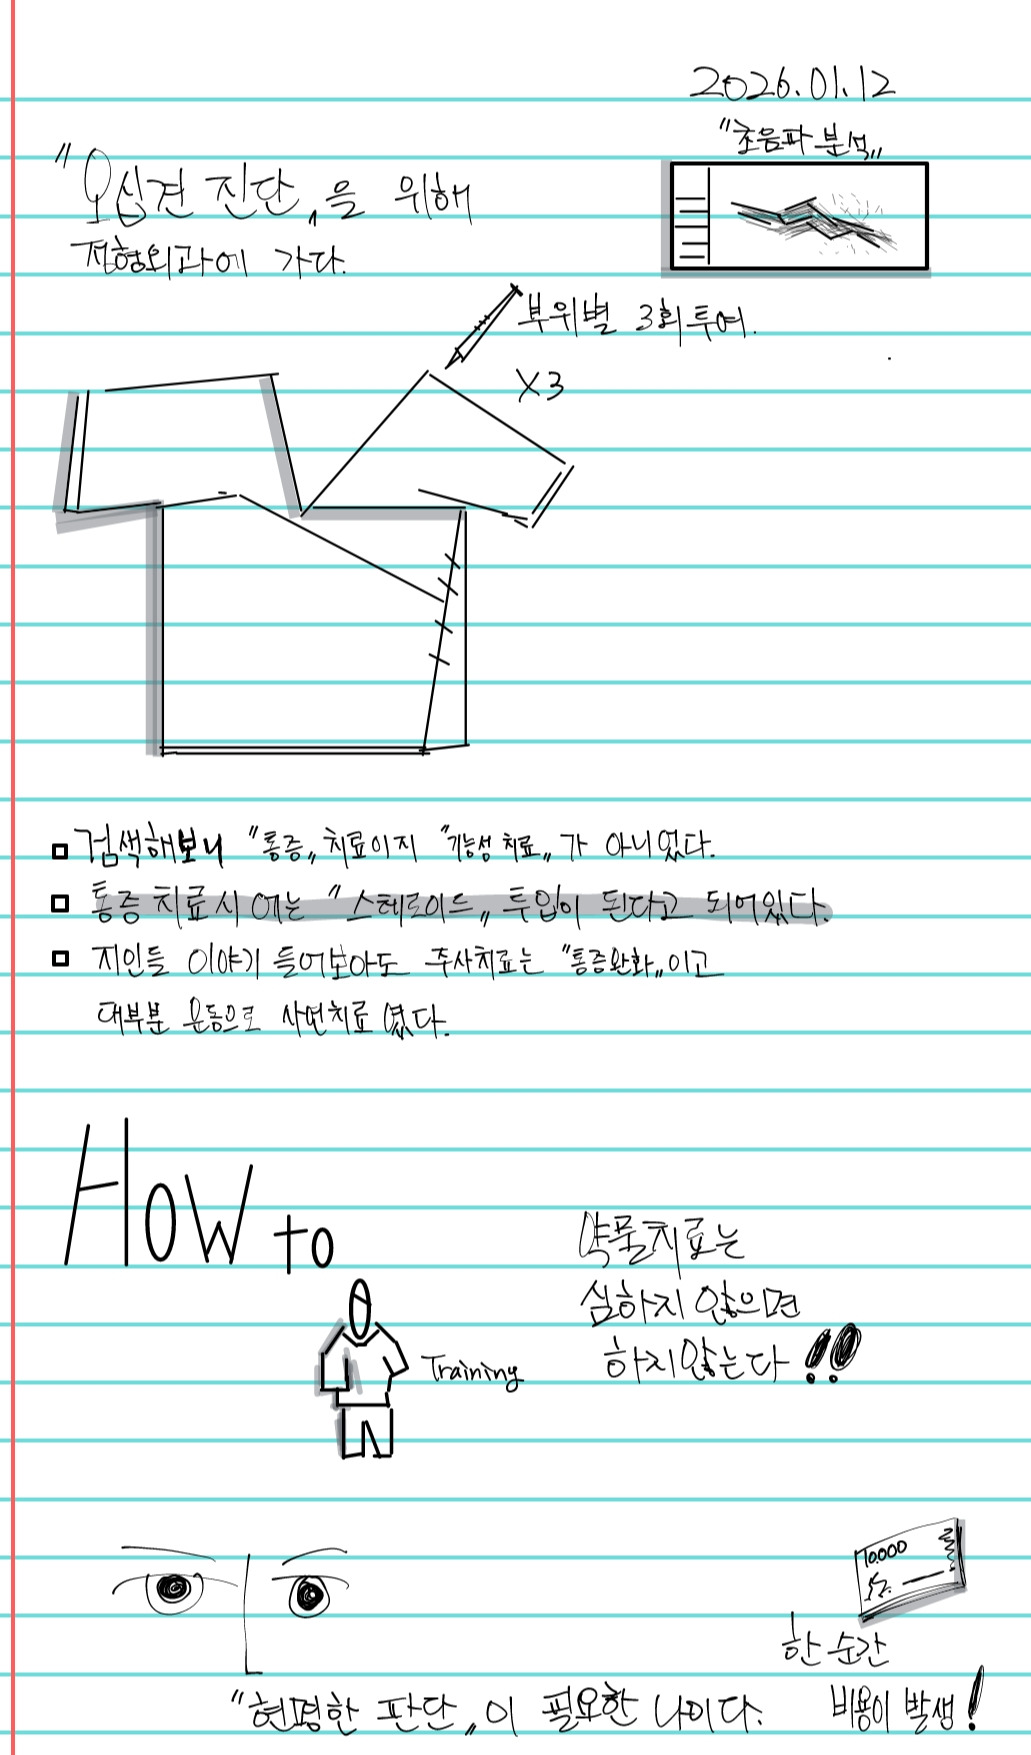 2026.01.12
"초음파 분석"
"오십견 진단"을 위해
정형외과에 가다.
부위별 3회 투여.
X3
검색해보니 "통증" 치료이지 "기능성 치료"가 아니었다.
통증 치료시에는 "스테로이드" 투입이 된다고 되어있다.
지인들 이야기 들어보아도 주사치료는 "통증완화"이고
대부분 운동으로 자연치료 였다.
How to
약물치료는
심하지 않으면
하지않는다!!
Training
10,000
한 순간
비용이 발생!
"현명한 판단"이 필요한 나이다.